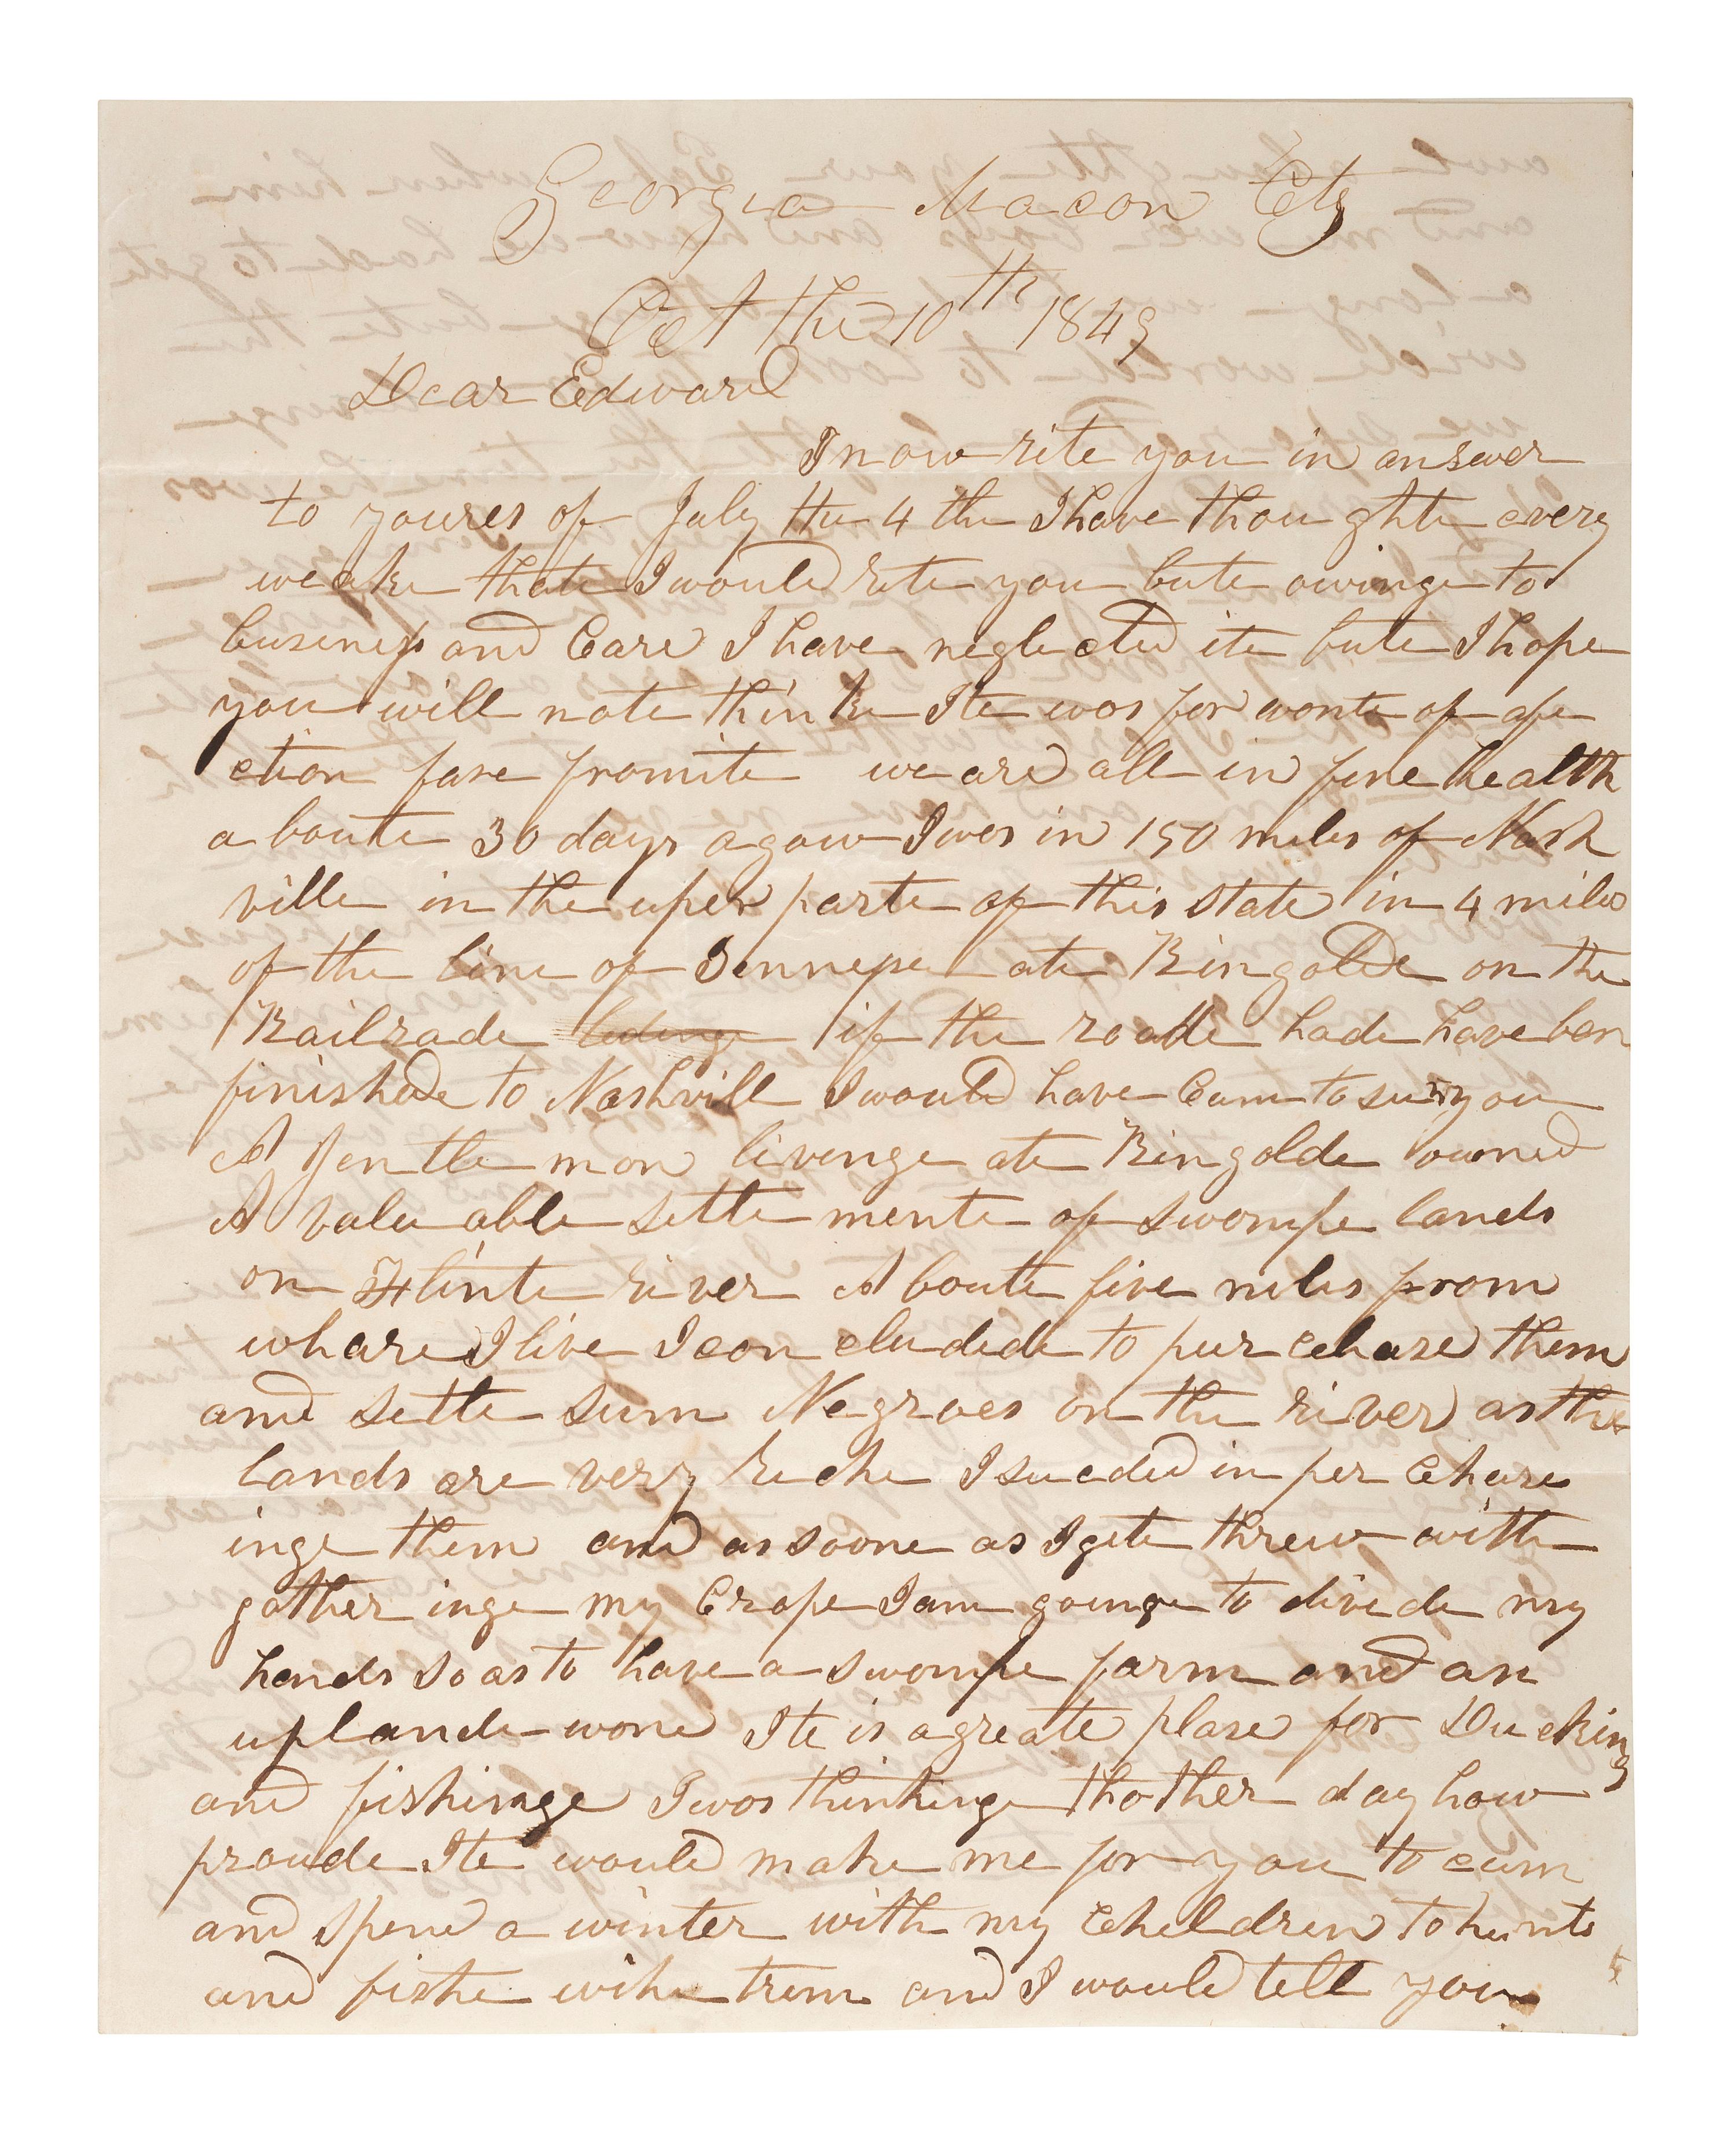 Georgia Macon Cty
Oct the 10th 1849
Dear Edward
I now rite you in answer
to youres of July the 4 the I have thoughte every
weake thate I would rite you bute owinge to
business and Care I have neglected ite bute I hope
you will note thinke Ite wos for wonte of afe
ction fare fromite we are all in fine health
a boute 30 days agow I wos in 150 miles of Nash
ville in the uper parte of this state in 4 miles
of the line of Tennesse ate Ringolde on the
Railrade if the roade hade have ben
finishede to Nashvill I would have Cum to see you
A Jentle mon livenge ate Ringolde owned
A valuable settlemente of swompe lands
on Flinte river A boute five miles from
whare I live I concludede to purcchase them
and settle sum Negroes on the river as the
lands are very riche I suceded in perchase
inge them and as soone as I gete threw with
gatheringe my Crope I am goinge to divide my
hands so as to have a swompe farm and an
uplande wone Ite is a greate plase for Ducking
and fishinge I wos thinkinge thother day how
proude Ite would make me for you to cum
and spend a winter with my Children to hunte
and fishe withe trem and I would tell you